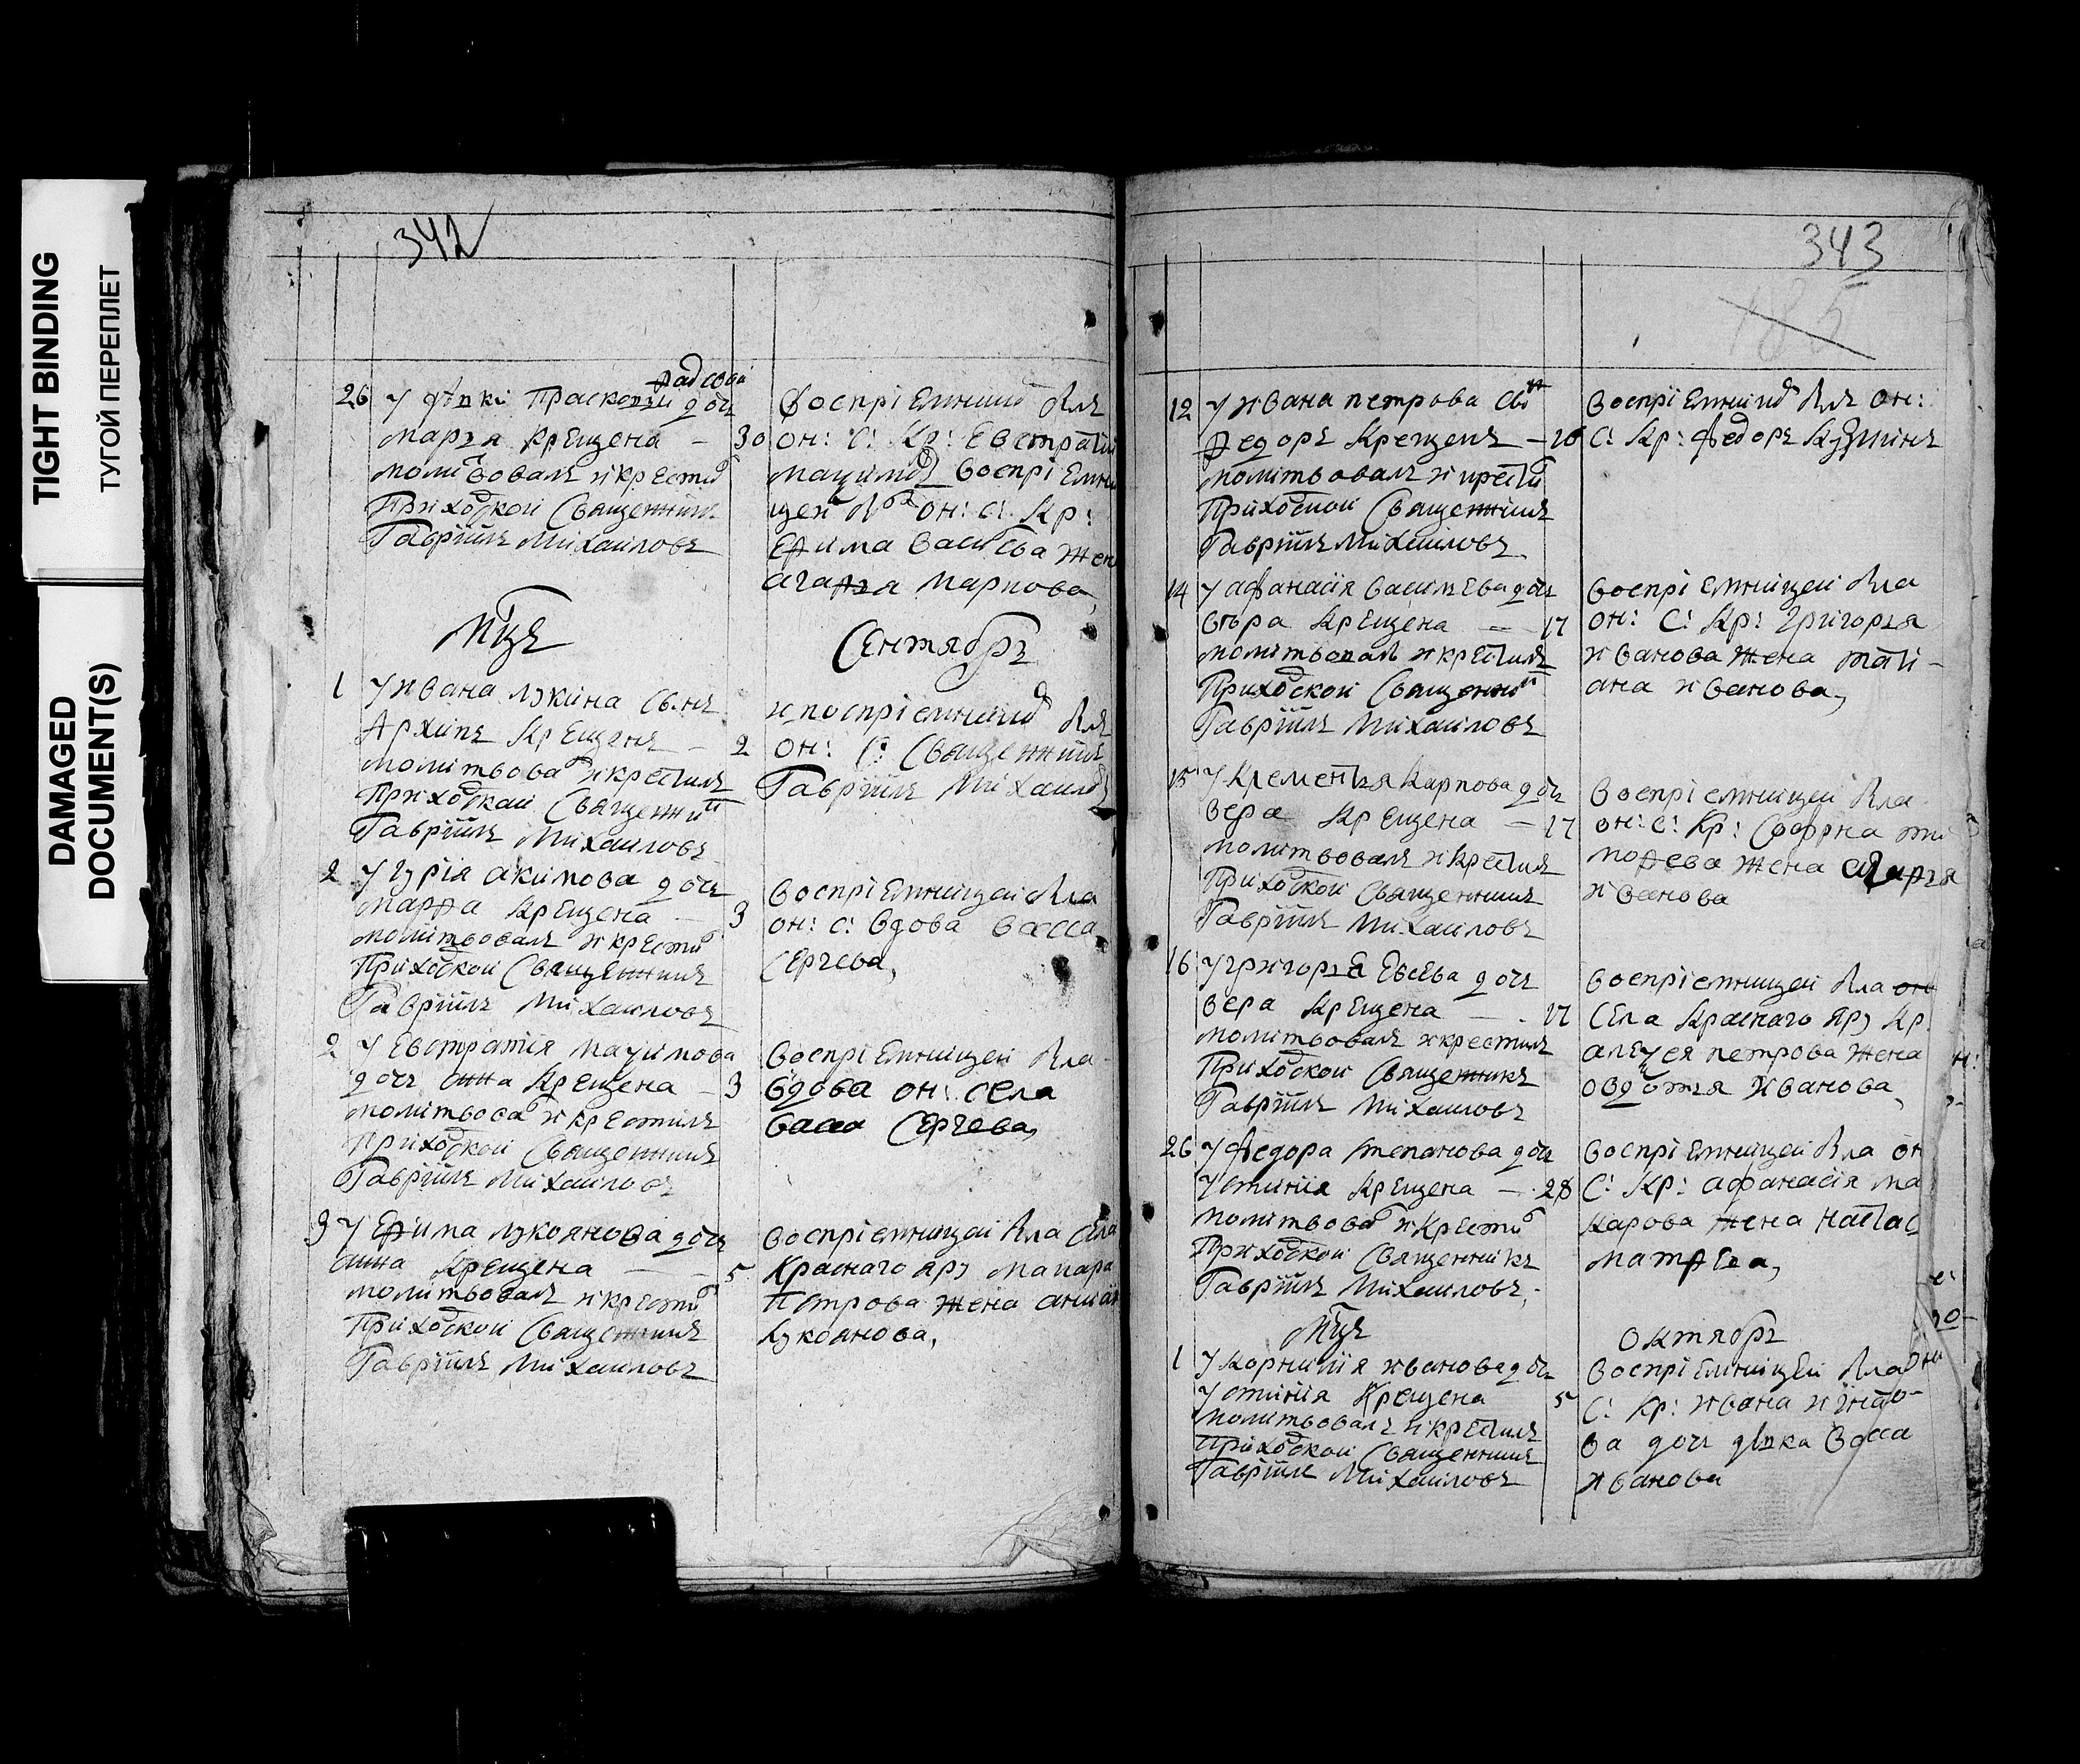 TIGHT BINDING
ТУГОЙ ПЕРЕПЛЕТ
DAMAGED
DOCUMENT(S)
342
26 У дѣвки Прасковьи дочь
Марья крещена — 30
молитвовалъ и крестил
Приходской Священникъ
Гаврiилъ Михаиловъ
Воспрiемникъ былъ
он: С: Кр: Евстратiй
воспрiемни
цей он: С: Кр:
Ефима Васильева жен
агафья Марпова
Мцъ Сентябрь
1 У ивана лукина сынъ
Архипъ крещенъ — 2
молитвовал и крестилъ
Приходской Священник
Гаврiилъ Михаиловъ
воспрiемникъ былъ
он: С: Священникъ
Гаврiилъ Михаиловъ
2 У гурiя акимова дочь
Марфа крещена — 3
молитвовалъ и крестил
Приходской Священникъ
Гаврiилъ Михаиловъ
Воспрiемницей была
он: с: вдова васса
Сергева,
2 У Евстратия
дочь анна крещена — 3
молитвовал и крестилъ
Приходской Священникъ
Гаврiилъ Михаиловъ
Воспрiемницей была
вдова он: села
васса Сергева,
3 У Ефима лукоянова дочь
анна крещена — 5
молитвовалъ и крестил
Приходской Священникъ
Гаврiилъ Михаиловъ
воспрiемницей была села
Краснаго яру макара
Петрова жена
лукоянова,
343
185
12 У ивана петрова сын
Федоръ крещенъ — 16
молитвовалъ и крестил
Приходской Священникъ
Гаврiилъ Михаиловъ
Воспрiемникъ былъ он:
С: Кр: Федоръ Кузминъ
14 У афанасiя васильева дочь
вѣра крещена — 17
молитвовал и крестилъ
Приходской Священник
Гаврiилъ Михаиловъ
воспрiемницей была
он: С: Кр: григорья
иванова жена тати-
ана иванова,
15 У Клементья Карпова дочь
вера крещена — 17
молитвовалъ и крестил
Приходской Священникъ
Гаврiилъ Михаиловъ
Воспрiемницей была
он: с: Кр: Софрна ти
мофева жена
иванова
16 У григорья Евсева дочь
вера крещена — 17
молитвовалъ и крестилъ
Приходской Священникъ
Гаврiилъ Михаиловъ
воспрiемницей была он
Села Краснаго яру Кр
алеѯея петрова жена
овдотья иванова,
26 У Федора степанова дочь
Устинiя крещена — 28
молитвовал и крестил
Приходской Священникъ
Гаврiилъ Михаиловъ
воспрiемницей была он
С: Кр: афанасiя ма
карова жена настас
матфева,
Мцъ октябрь
1 У корнилiя иванова дочь
Устинiя крещена 5
молитвовалъ и крестилъ
Приходской Священникъ
Гаврiилъ Михаиловъ
воспрiемницей была он
С: Кр: ивана
ва дочь дѣвка васса
иванова